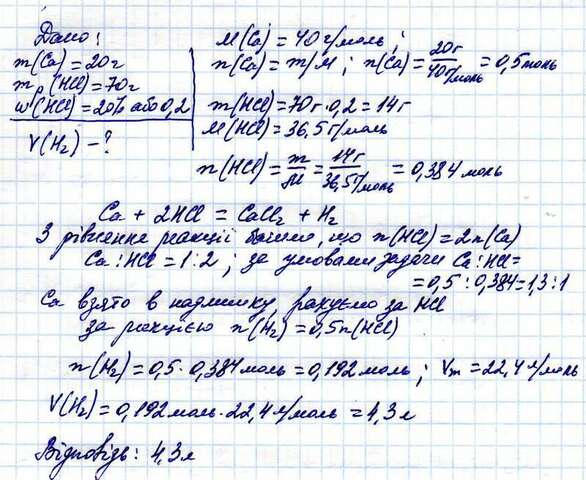 Дано:
m(Ca) = 20г
mр(HCl) = 70г
w(HCl) = 20% або 0,2
V(H₂) - ?
M(Ca) = 40 г/моль;
n(Ca) = m/M; n(Ca) = 20г / 40г/моль = 0,5 моль
m(HCl) = 70г · 0,2 = 14г
M(HCl) = 36,5г/моль
n(HCl) = m/M = 14г / 36,5г/моль = 0,384 моль
Ca + 2HCl = CaCl₂ + H₂
З рівняння реакції бачимо, що n(HCl) = 2n(Ca)
Ca : HCl = 1 : 2 ; за умовами задачи Ca : HCl =
= 0,5 : 0,384 = 1,3 : 1
Ca взято в надлишку, рахуємо за HCl
за реакцією n(H₂) = 0,5n(HCl)
n(H₂) = 0,5 · 0,384 моль = 0,192 моль ; Vm = 22,4 л/моль
V(H₂) = 0,192 моль · 22,4 л/моль = 4,3 л
Відповідь: 4,3 л